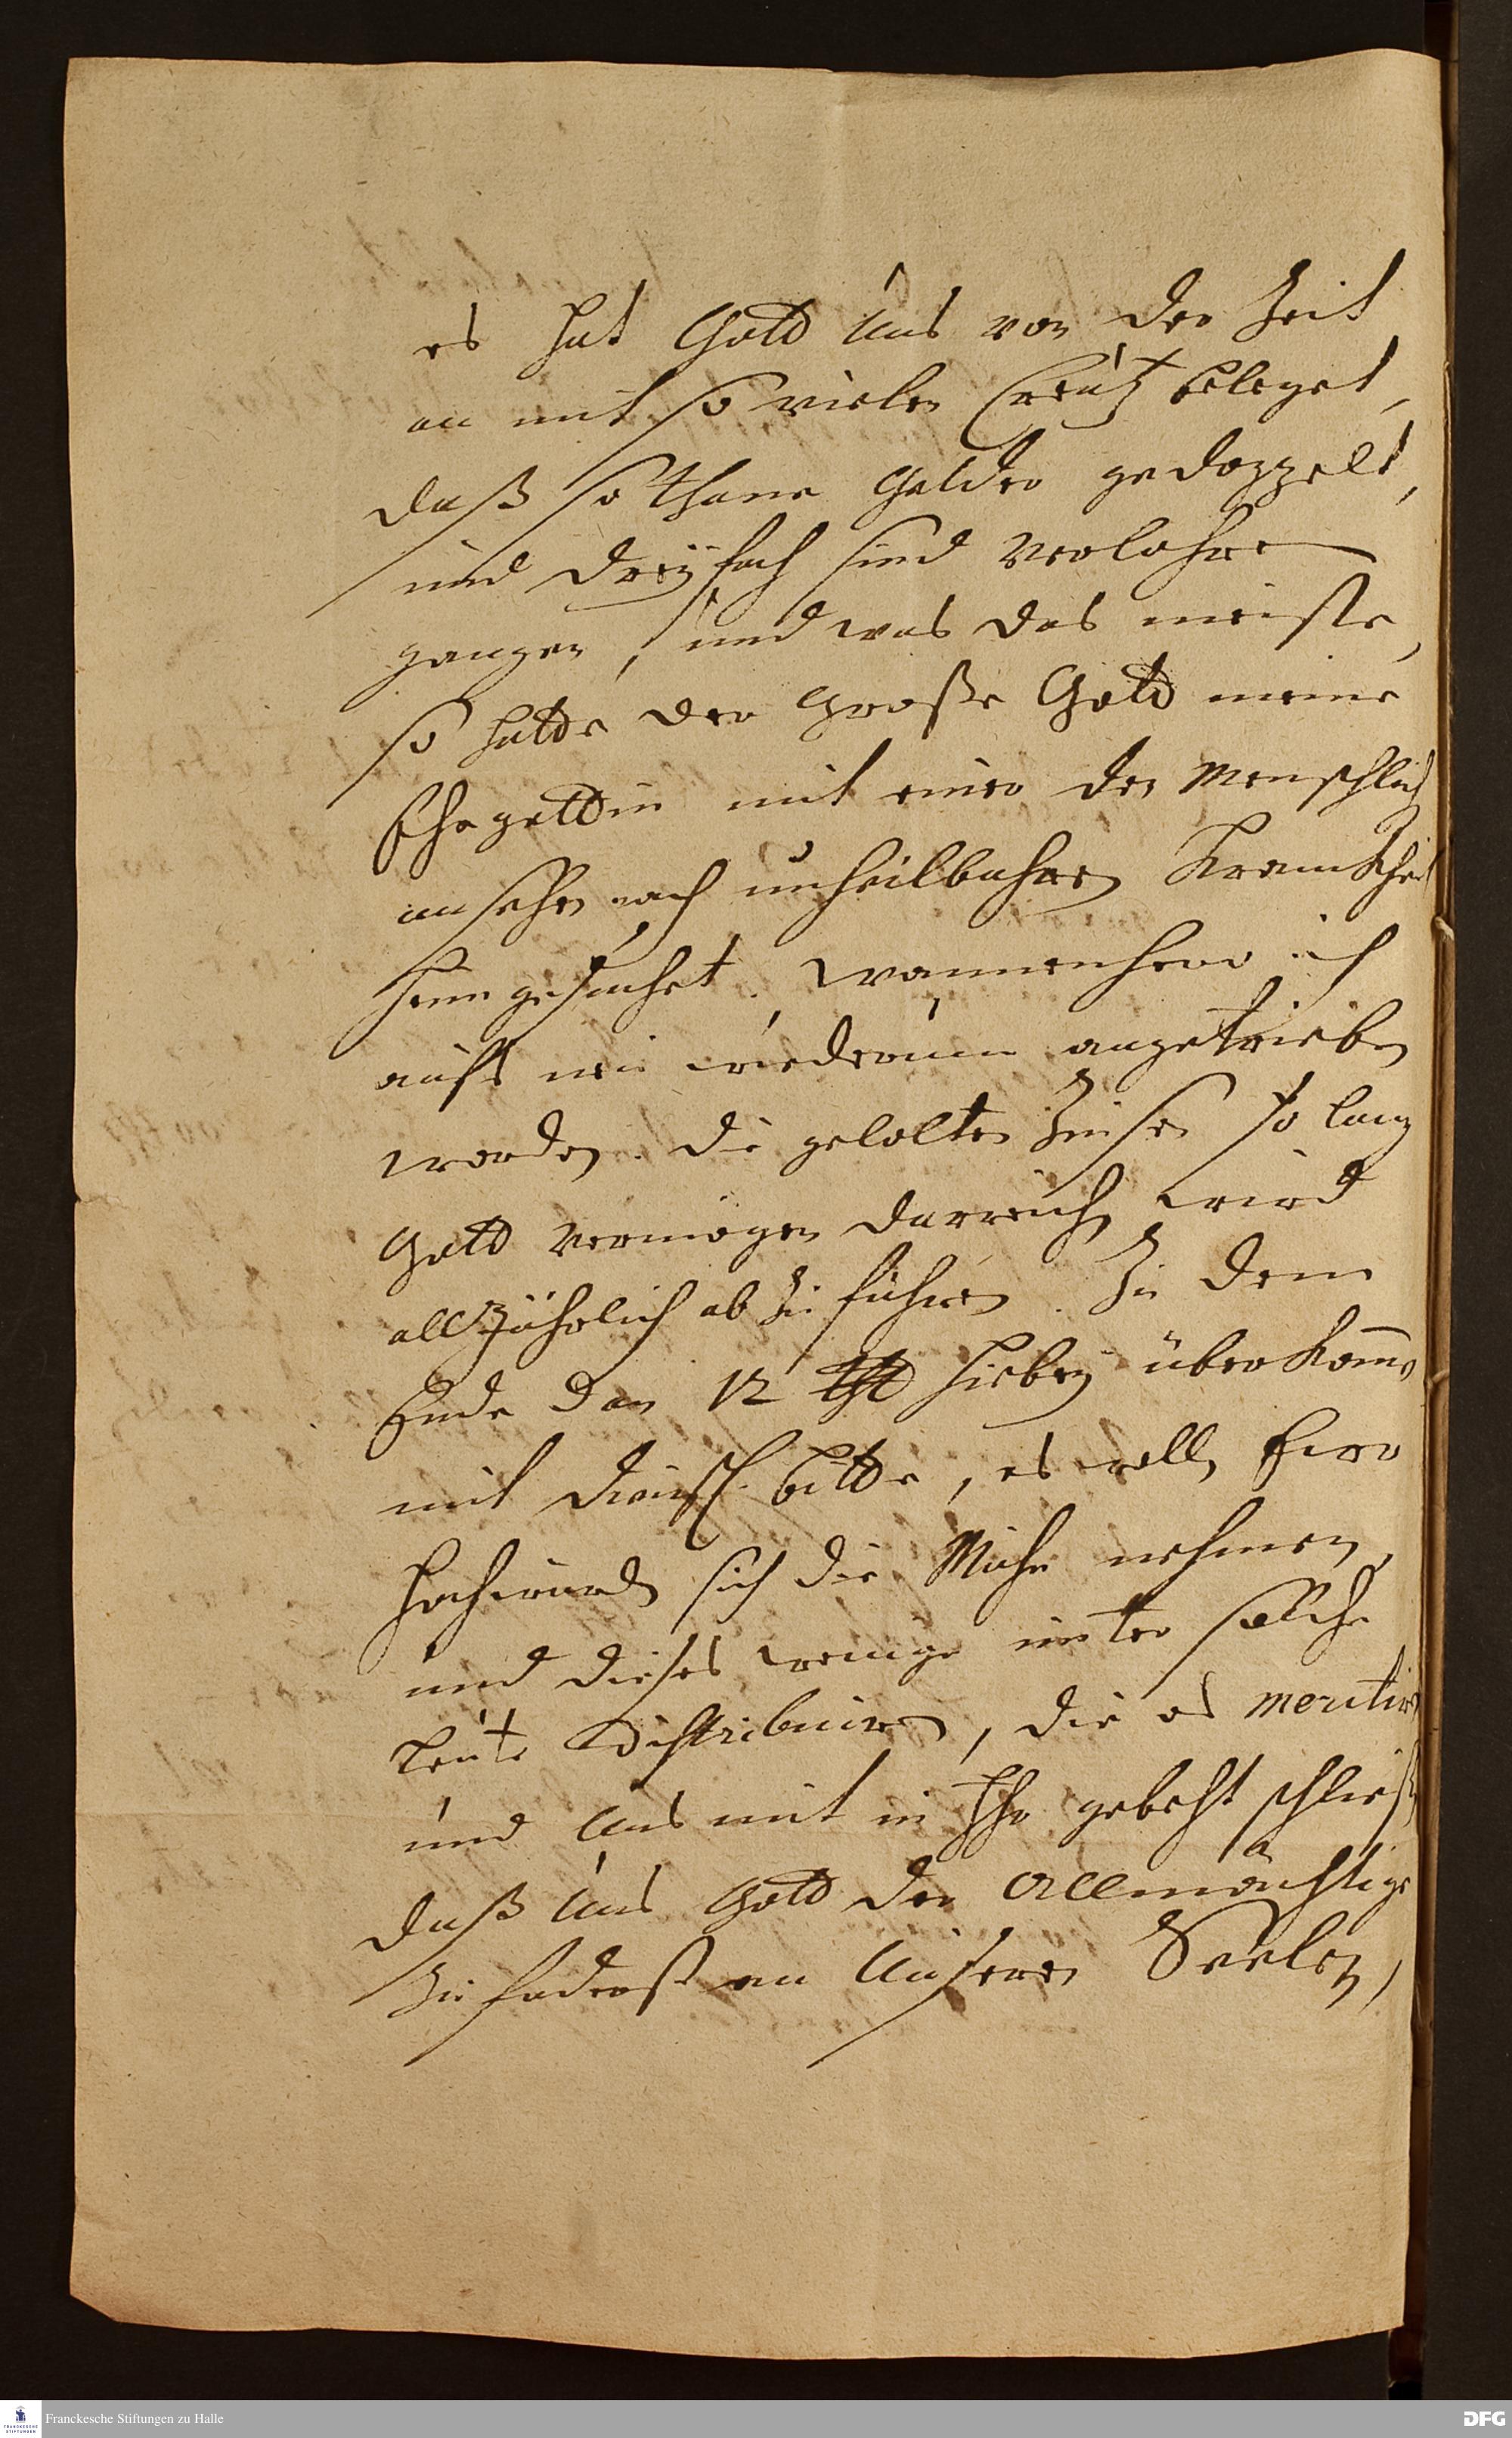 es hat Gott Uns von der Zeit
an mit so vielen Creutz beleget,
daß so thane Gelder gedoppelt,
und dreyfach sind verlohren
gangen, und was das meiste,
so hatte der Grosse Gott meine
Ehegattin mit einer den Menschlich
ansehen nach unheilbahren Kranckheit
heimgesuchet. wannenhero ich
aufs neu wiederumb angetrieben
worden. die gelobten Zinsen so lang
Gott vermögen darreichen wird
alljährlich abzuführen. Zu dem
Ende dan 12 Thl hiebey überkom̅en
mit dienstl. bitte, es wollen Euer
Hochwürden sich die Mühe nehmen,
und dieses wenige unter solche
Leute distribuiren, die es meritiren
und Uns mit in Ihr gebeht schliessen
daß Uns Gott der Allmächtige
zu foderst an Unseren Seelen,
Franckesche Stiftungen zu Halle
FRANCKESCHE STIFTUNGEN
DFG